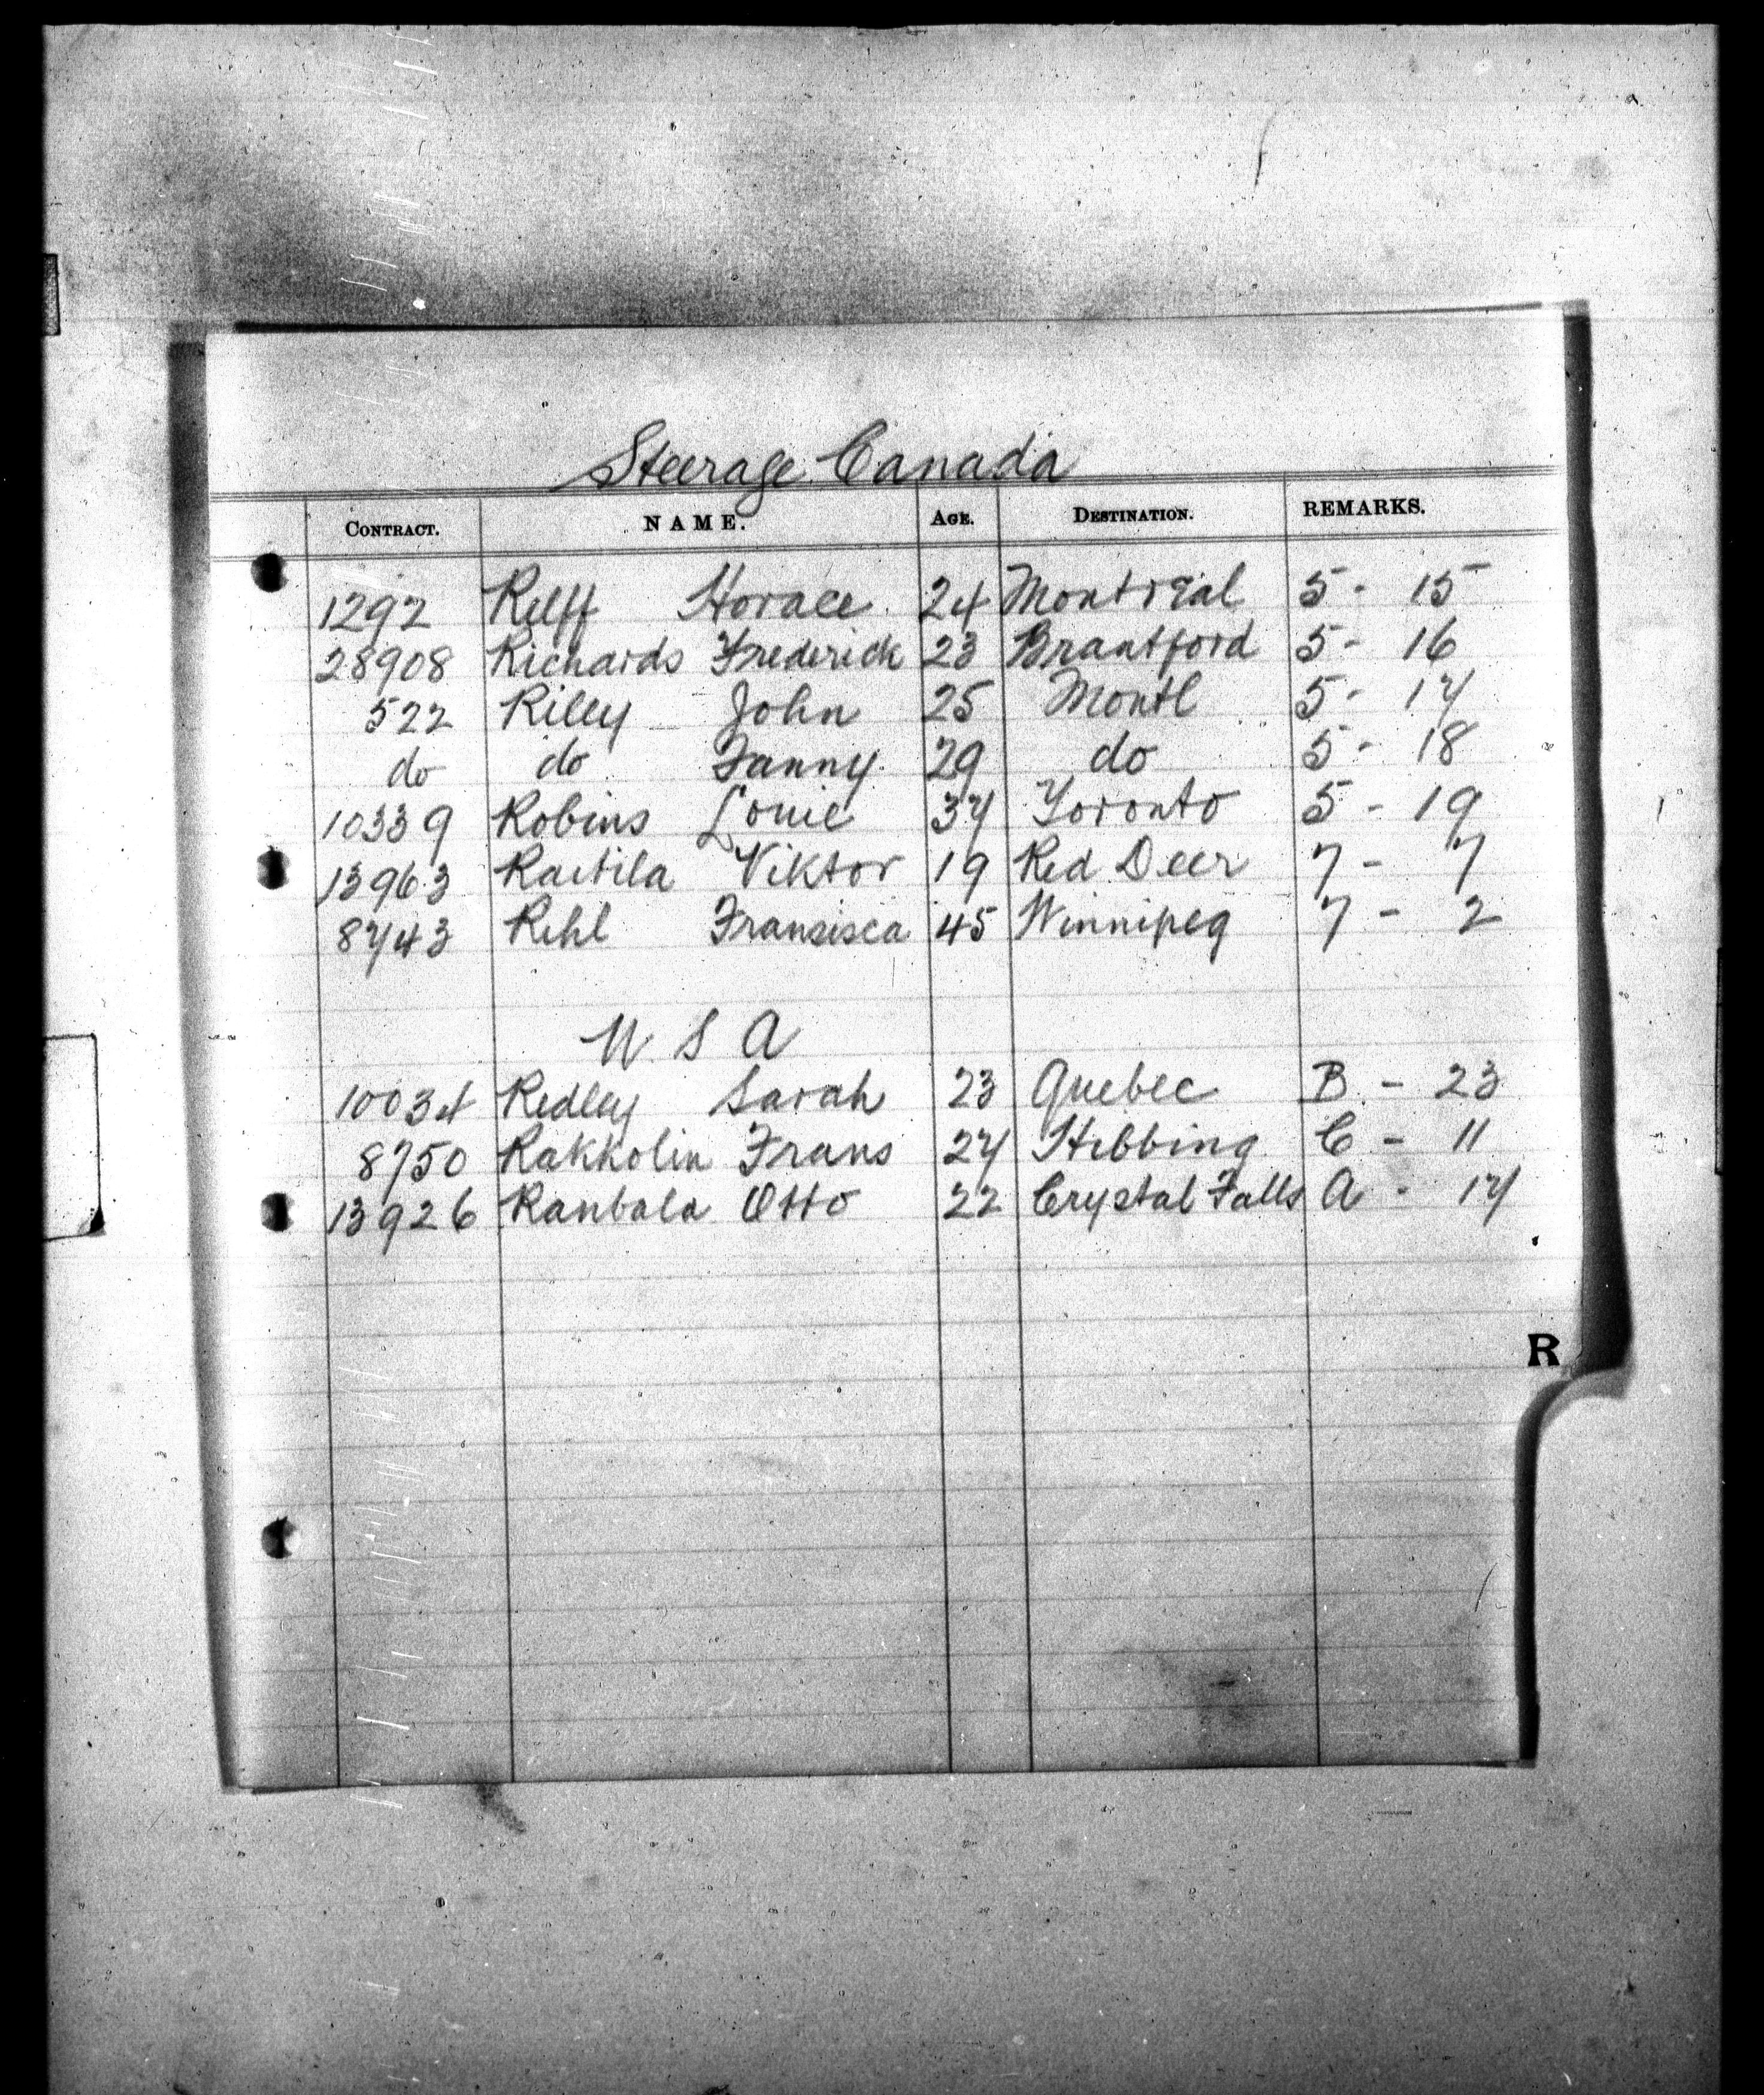 Steerage Canada
CONTRACT. NAME. AGE. DESTINATION. REMARKS.
1292 Relff Horace 24 Montreal 5 - 15
28908 Richards Frederick 23 Brantford 5 - 16
522 Rilly John 25 Montl 5 - 17
do do Fanny 29 do 5 - 18
10339 Robins Louie 37 Toronto 5 - 19
13963 Raitila Viktor 19 Red Deer 7 - 7
8743 Rehl Fransisca 45 Winnipeg 7 - 2
U S A
10034 Redley Sarah 23 Quebec B - 23
8750 Rakkolin Frans 27 Hibbing C - 11
13926 Rantala Otto 22 Crystal Falls A - 17
R